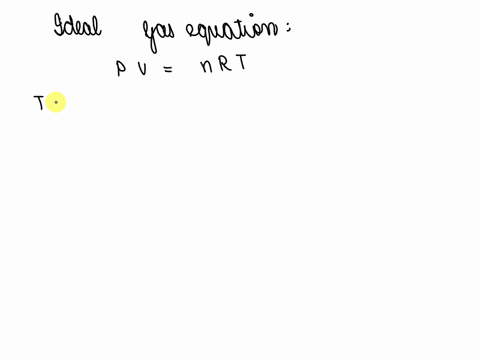 Ideal gas equation:
P V = n R T
T